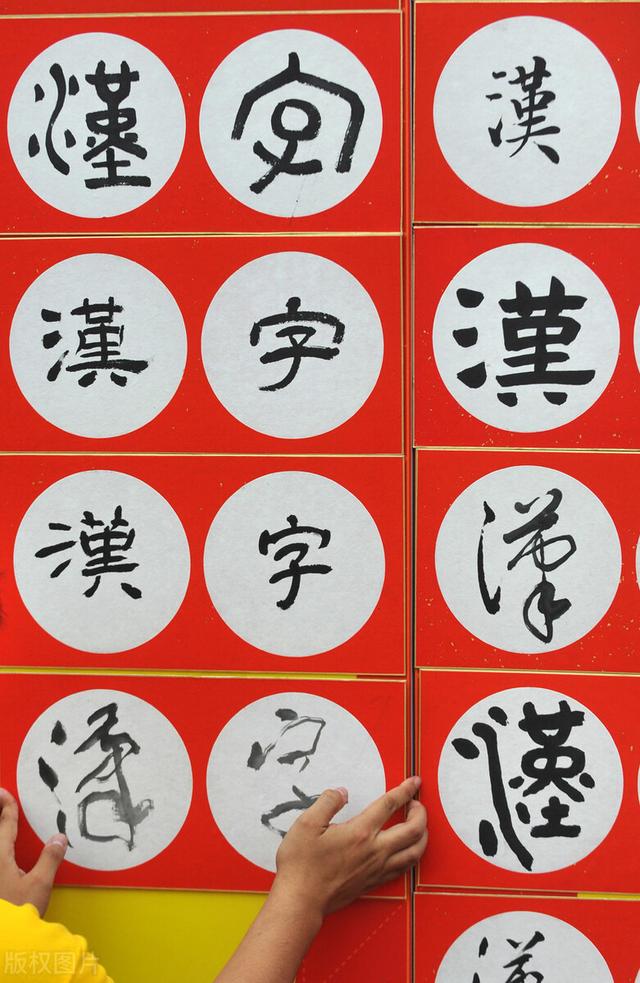 漢字 漢
漢字 漢
漢字 漢
漢字 漢
漢
版权图片